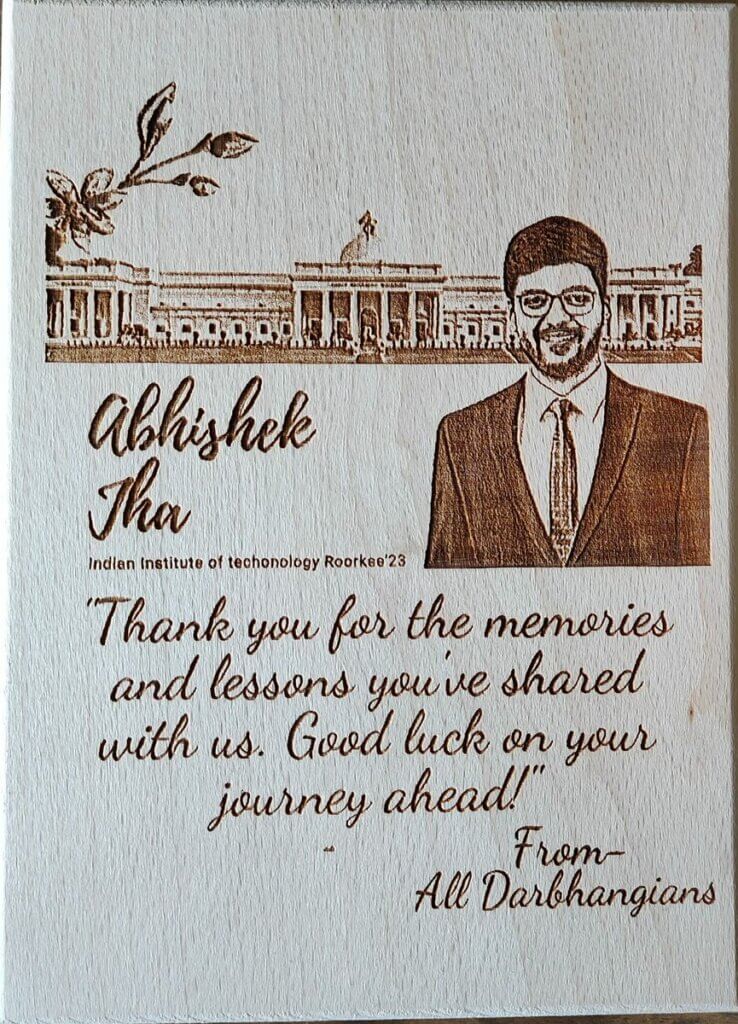 Abhishek
Jha
Indian Institute of techonology Roorkee'23
"Thank you for the memories
and lessons you've shared
with us. Good luck on your
journey ahead!"
From-
All Darbhangians